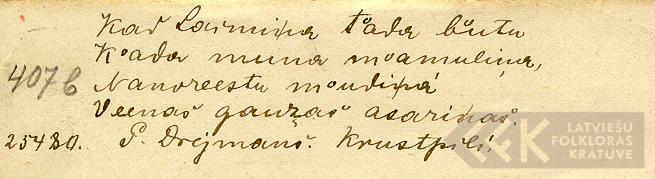 Kad Laimiņa tāda būtu
Kāda muna mamuliņa,
Nanoreestu maudiņā
Veenas gauzas asariņas.
407 b
25480. P. Drejmans. Krustpilī.
LATVIEŠU
FOLKLORAS
KRĀTUVE